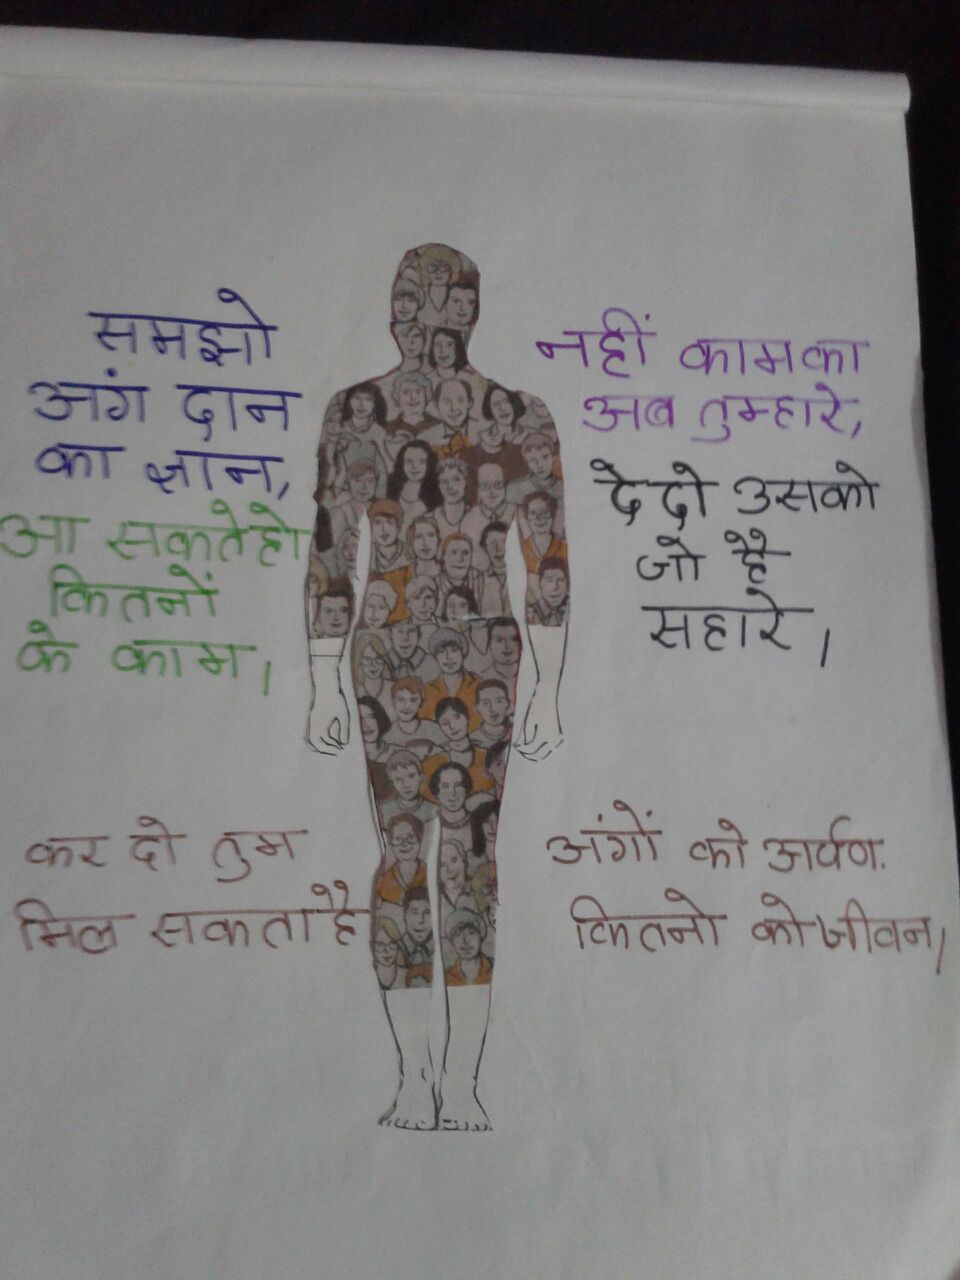 समझो
अंग दान
का ज्ञान,
आ सकतेहो
कितनों
के काम।
नहीं कामका
अब तुम्हारे,
दे दो उसको
जो है
सहारे।
कर दो तुम अंगों को अर्पण.
मिल सकता है कितनो को जीवन।